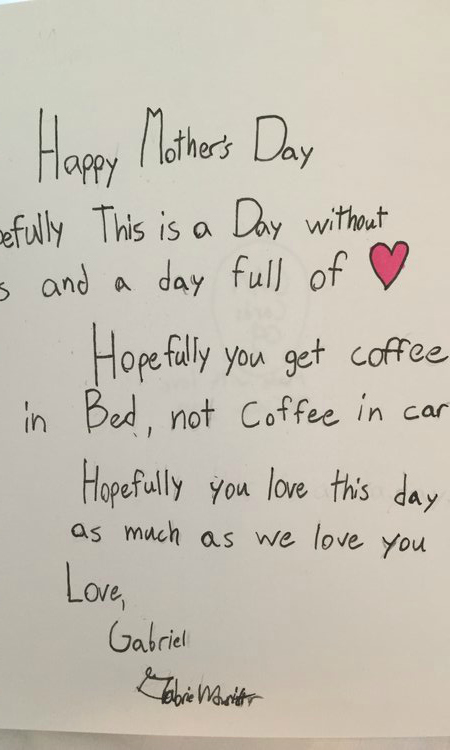 Happy Mother's Day
efully This is a Day without
s and a day full of
Hopefully you get coffee
in Bed, not Coffee in car
Hopefully you love this day
as much as we love you
Love,
Gabriel